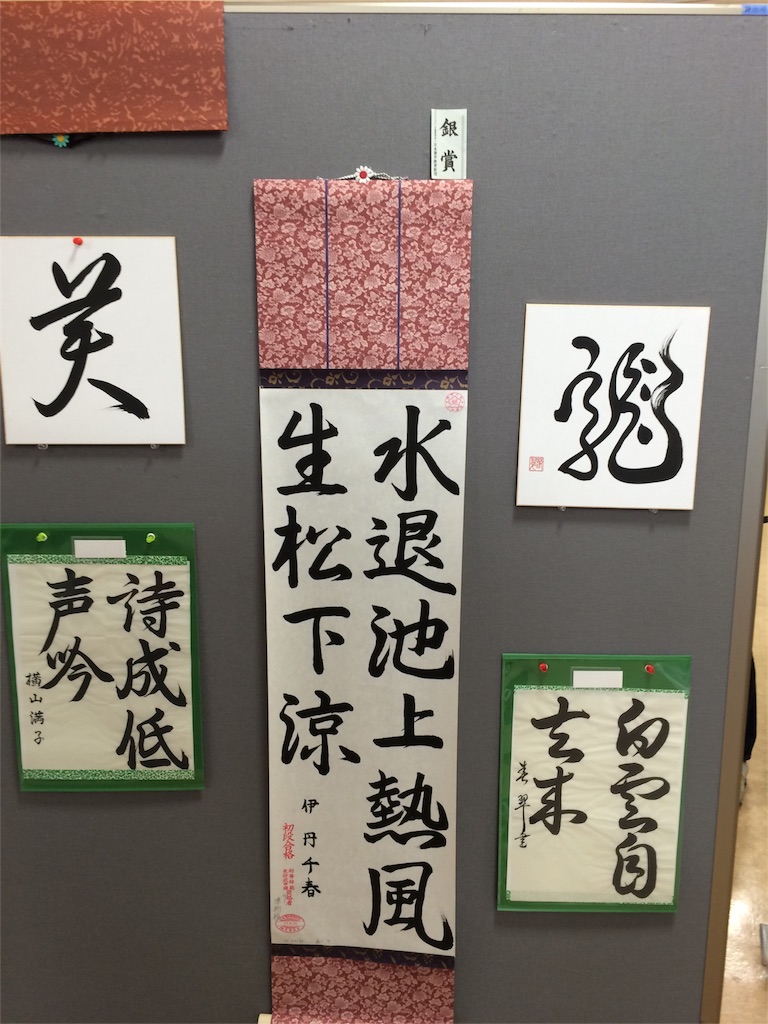 銀賞
水退池上熱風
生松下涼
伊丹千春
初段合格
龍
美
白雲自
去来
春翠書
詩成低
声吟
横山満子